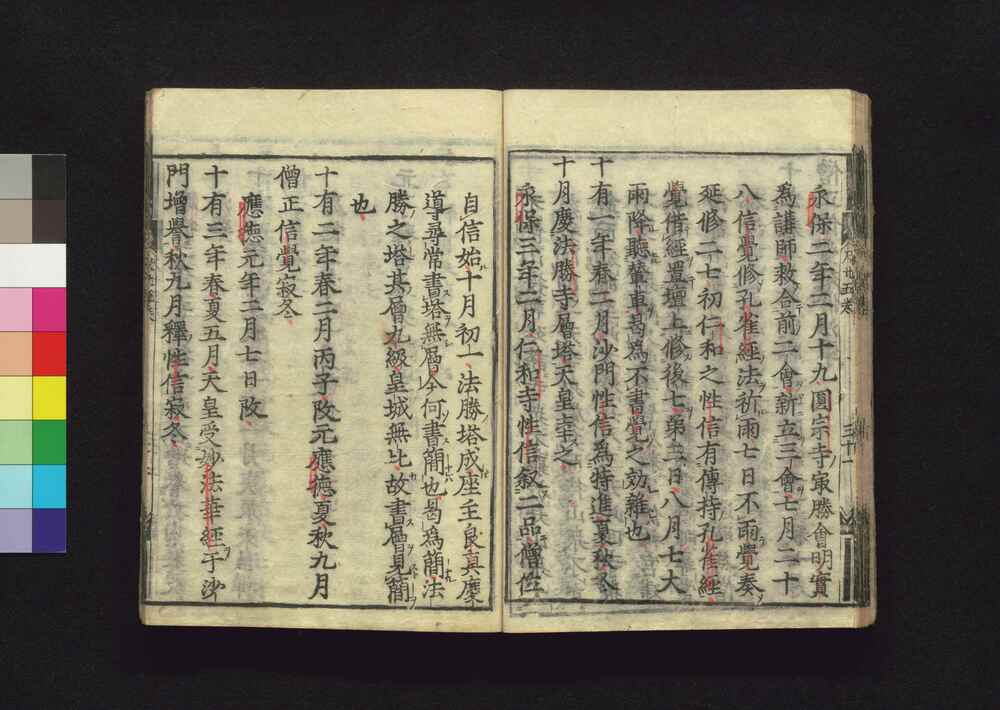 永保二年二月十九圓宗寺㝡勝會明實
爲講師救合前二會新立三會七月二十
八信覺修孔雀經法祈雨七日不雨覺奏
延修二七初仁和之性信有傳持孔雀經
覺借經置壇上修後七第三日八月七大
雨降聽輦車曷爲不書覺之効雜也
十有一年春二月沙門性信爲特進夏秋冬
十月慶法勝寺層塔天皇幸之
永保三年二月仁和寺性信叙二品僧位
自信始十月初一法勝塔成座主良真慶
導尋常書塔無層今何書簡也曷爲簡法
勝之塔其層九級皇城無比故書層見簡
也
十有二年春二月丙子改元應德夏秋九月
僧正信覺寂冬
應德元年二月七日改
十有三年春夏五月天皇受妙法華經于沙
門增譽秋九月釋性信寂冬